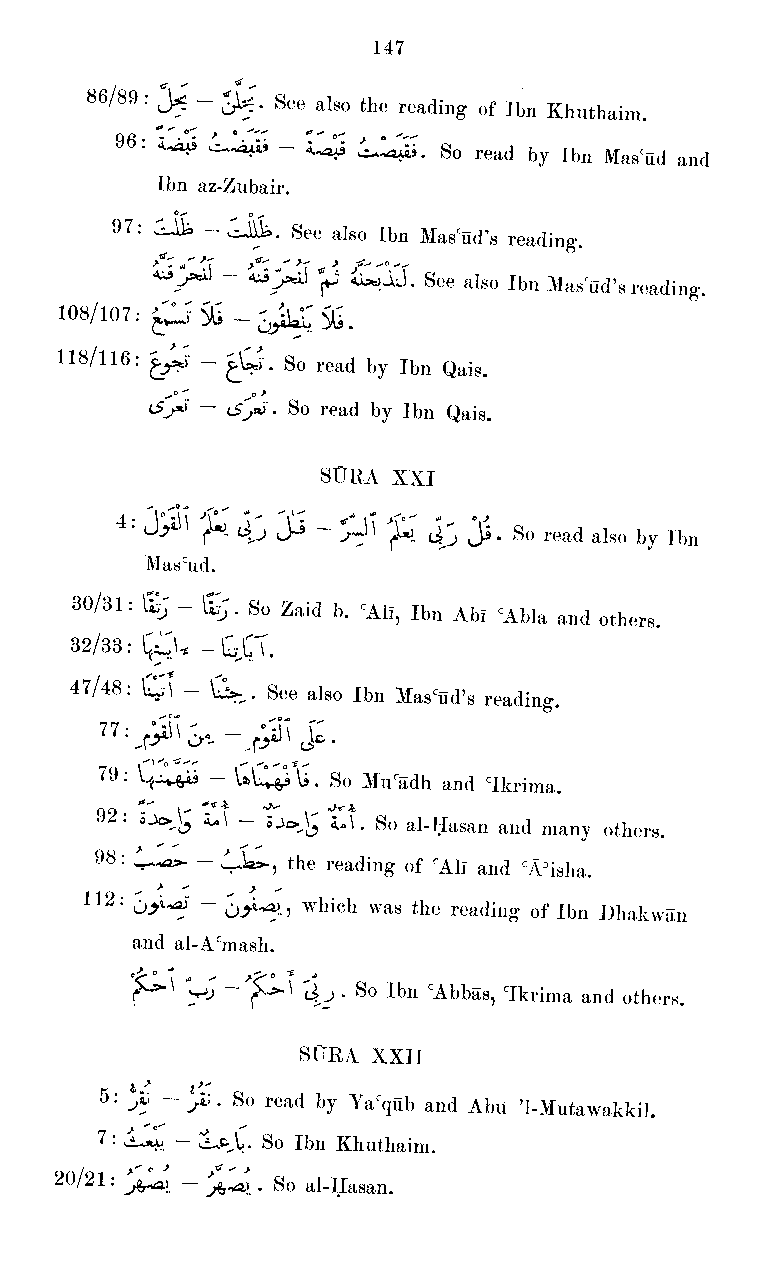 147
86/89: يَحِلَّ – يَحِلَّنَّ. See also the reading of Ibn Khuthaim.
96: فَقَبَضْتُ قَبْضَةً – فَقَبَصْتُ قَبْصَةً. So read by Ibn Masʿūd and
Ibn az-Zubair.
97: ظَلْتَ – ظَلِلْتَ. See also Ibn Masʿūd's reading.
لَنُحَرِّقَنَّهُ – لَنَذْبَحَنَّهُ ثُمَّ لَنُحَرِّقَنَّهُ. See also Ibn Masʿūd's reading.
108/107: فَلَا تَسْمَعُ – فَلَا يَنْطِقُونَ.
118/116: تَجُوعَ – تُجَاعَ. So read by Ibn Qais.
تَعْرَى – تُعْرَى. So read by Ibn Qais.
SŪRA XXI
4: قَـٰلَ رَبِّى يَعْلَمُ ٱلْقَوْلَ – قُلْ رَبِّى يَعْلَمُ ٱلسِّرَّ. So read also by Ibn
Masʿud.
30/31: رَتْقًا – رَتَقًا. So Zaid b. ʿAlī, Ibn Abī ʿAbla and others.
32/33: ءايـٰتِهَا – آيَاتِنَا.
47/48: أَتَيْنَا – جِئْنَا. See also Ibn Masʿūd's reading.
77: مِنَ ٱلْقَوْمِ – عَلَى ٱلْقَوْمِ.
79: فَفَهَّمْنَـٰهَا – فَأَفْهَمْنَاهَا. So Muʿādh and ʿIkrima.
92: أُمَّةً وَاحِدَةً – أُمَّةٌ وَاحِدَةٌ. So al-Ḥasan and many others.
98: حَصَبُ – حَطَبُ, the reading of ʿAlī and ʿĀʾisha.
112: تَصِفُونَ – يَصِفُونَ, which was the reading of Ibn Dhakwān
and al-Aʿmash.
رَبِّ ٱحْكُمْ – رَبِّىَ أَحْكَمُ. So Ibn ʿAbbās, ʿIkrima and others.
SŪRA XXII
5: نُقِرُّ – نَقُرُّ. So read by Yaʿqūb and Abu 'l-Mutawakkil.
7: يَبْعَثُ – بَاعِثُ. So Ibn Khuthaim.
20/21: يُصْهَرُ – يُصَهَّرُ. So al-Ḥasan.